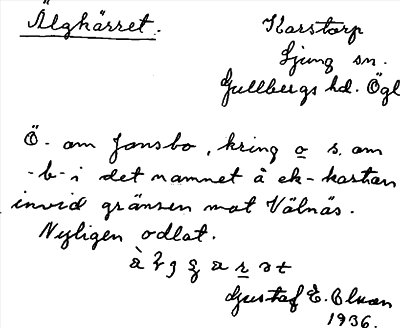 Älgkärret.
Karstorp
Ljung sn.
Gullbergs hd. Ögl
Ö. om Jansbo, kring o s. om
-b- i det namnet å ek-kartan
invid gränsen mot Välnäs.
Nyligen odlat.
Gustaf E. Olsson
1936.